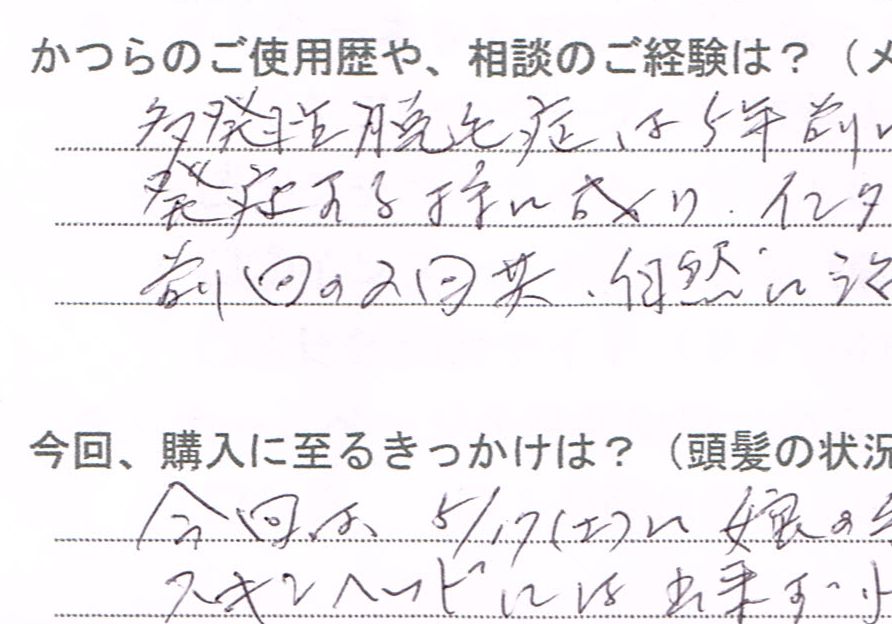 かつらのご使用歴や、相談のご経験は？（メ
多発性脱毛症は5年前に
発症する様に成り、インタ
前回の2回共、自然に治
今回、購入に至るきっかけは？（頭髪の状況
今回は、5/17(土)に娘の
スキンヘッドには出来ず、